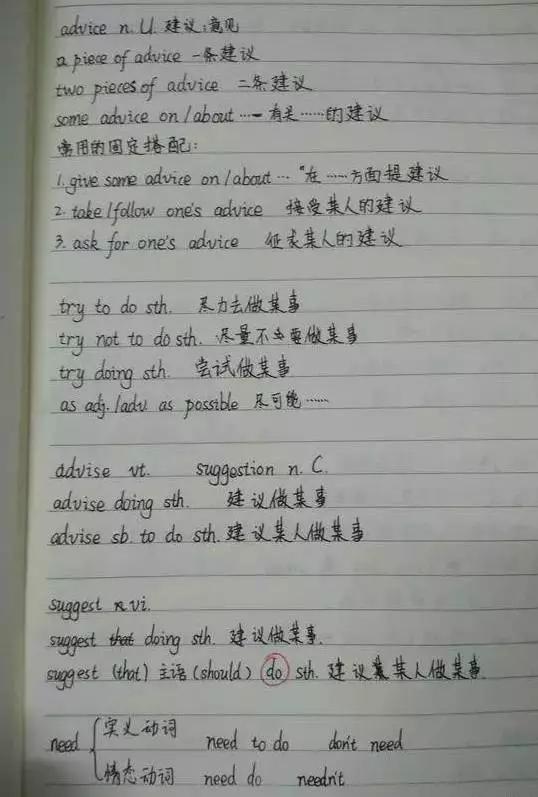 advice n. U. 建议;意见
a piece of advice 一条建议
two pieces of advice 二条建议
some advice on/about …… 有关……的建议
常用的固定搭配:
1. give some advice on/about … "在……方面提建议
2. take/follow one's advice 接受某人的建议
3. ask for one's advice 征求某人的建议
try to do sth. 尽力去做某事
try not to do sth. 尽量不要做某事
try doing sth. 尝试做某事
as adj./adv as possible 尽可能……
advise vt. suggestion n. C.
advise doing sth. 建议做某事
advise sb. to do sth. 建议某人做某事
suggest vi.
suggest that doing sth. 建议做某事.
suggest (that) 主语 (should) do sth. 建议某人做某事.
need
实义动词 need to do don't need
情态动词 need do needn't